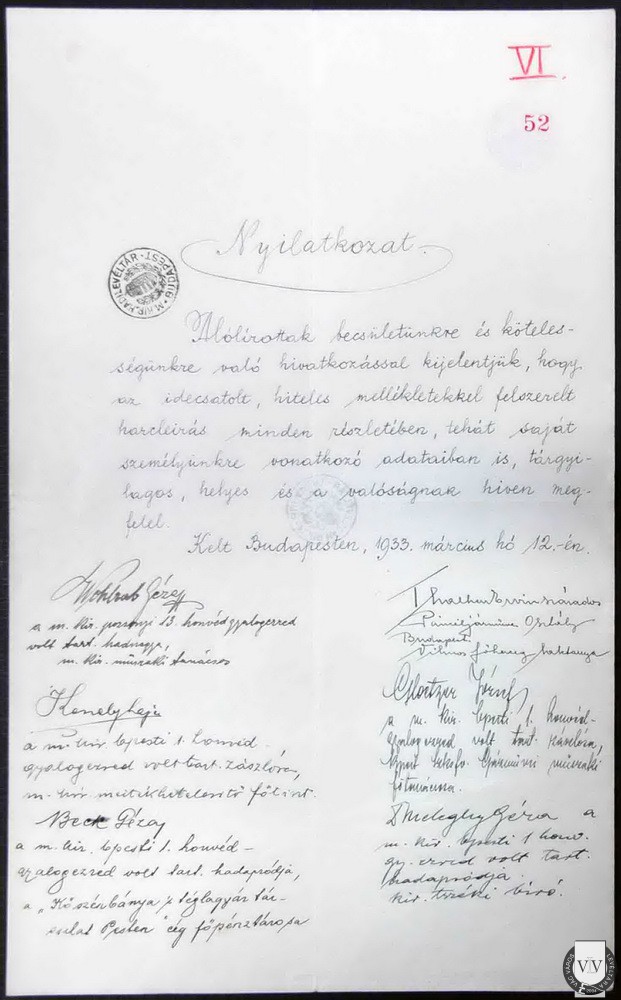 VI.
52
Nyilatkozat.
BUDAPEST · M. KIR. HADILEVÉLTÁR ·
Alólirottak becsületünkre és köteles-
ségünkre való hivatkozással kijelentjük, hogy
az idecsatolt, hiteles mellékletekkel felszerelt
harcleirás minden részletében, tehát saját
személyünkre vonatkozó adataiban is, tárgyi-
lagos, helyes és a valóságnak hiven meg-
felel.
Kelt Budapesten, 1933. március hó 12.-én.
Wohlrab Géza
a m. kir. pozsonyi 13. honvédgyalogezred
volt tart. hadnagya,
m. kir. műszaki tanácsos
a m. kir. bpesti 1. honvéd-
gyalogezred volt tart. zászlósa,
m. kir. főint.
Beck Géza
a m. kir. bpesti 1. honvéd-
gyalogezred volt tart. hadapródja,
a „Kőszénbánya s téglagyár tár-
sulat Pesten" cég főpénztárosa
Ervin százados
Osztály
Budapest
Vilmos laktanya
József
a m. kir. bpesti 1. honvéd-
gyalogezred volt tart. zászlósa,
műszaki
főtanácsosa.
Dr Meleghy Géza a
m. kir. bpesti 1 honv.
gy. ezred volt tart.
hadapródja.
kir. trszéki biró.
VÁC VÁROS LEVÉLTÁRA
VVL